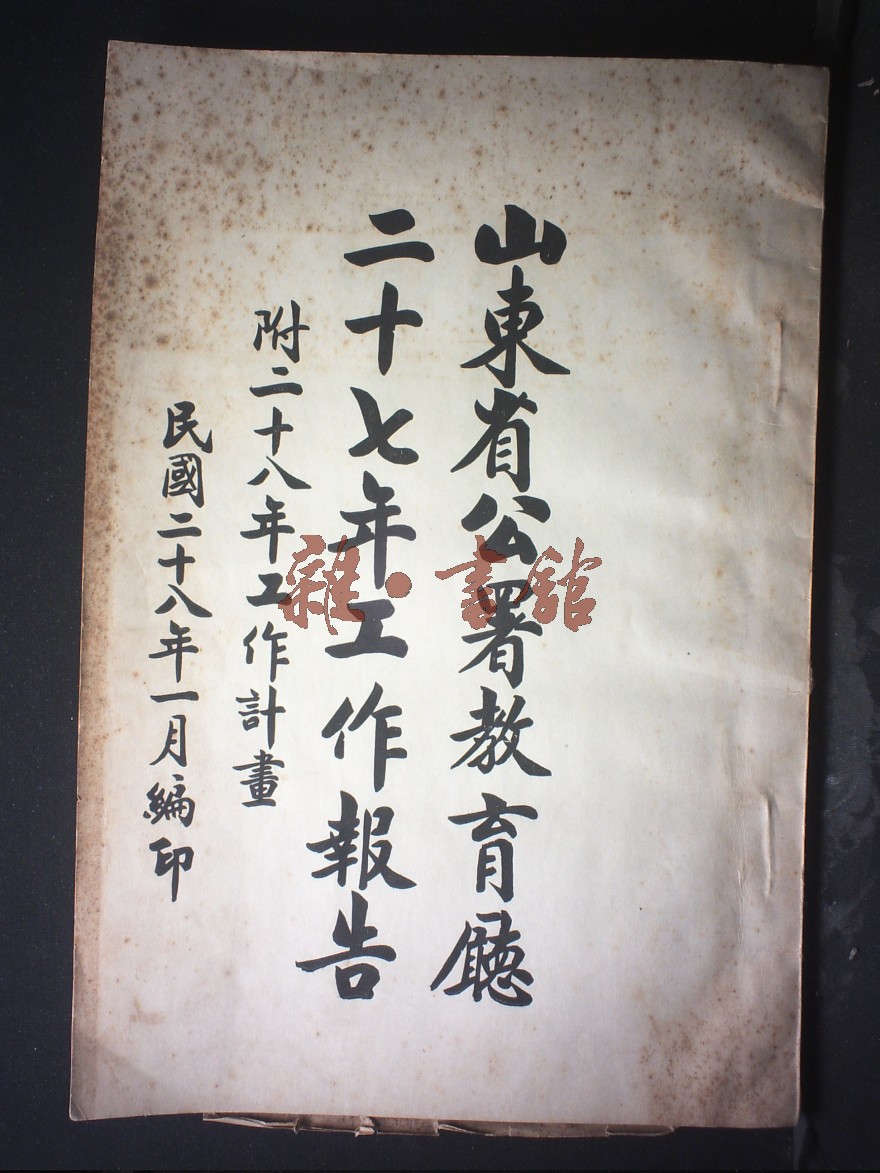 山東省公署教育廳
二十七年工作報告
附二十八年工作計畫
民國二十八年一月編印
雜·書館